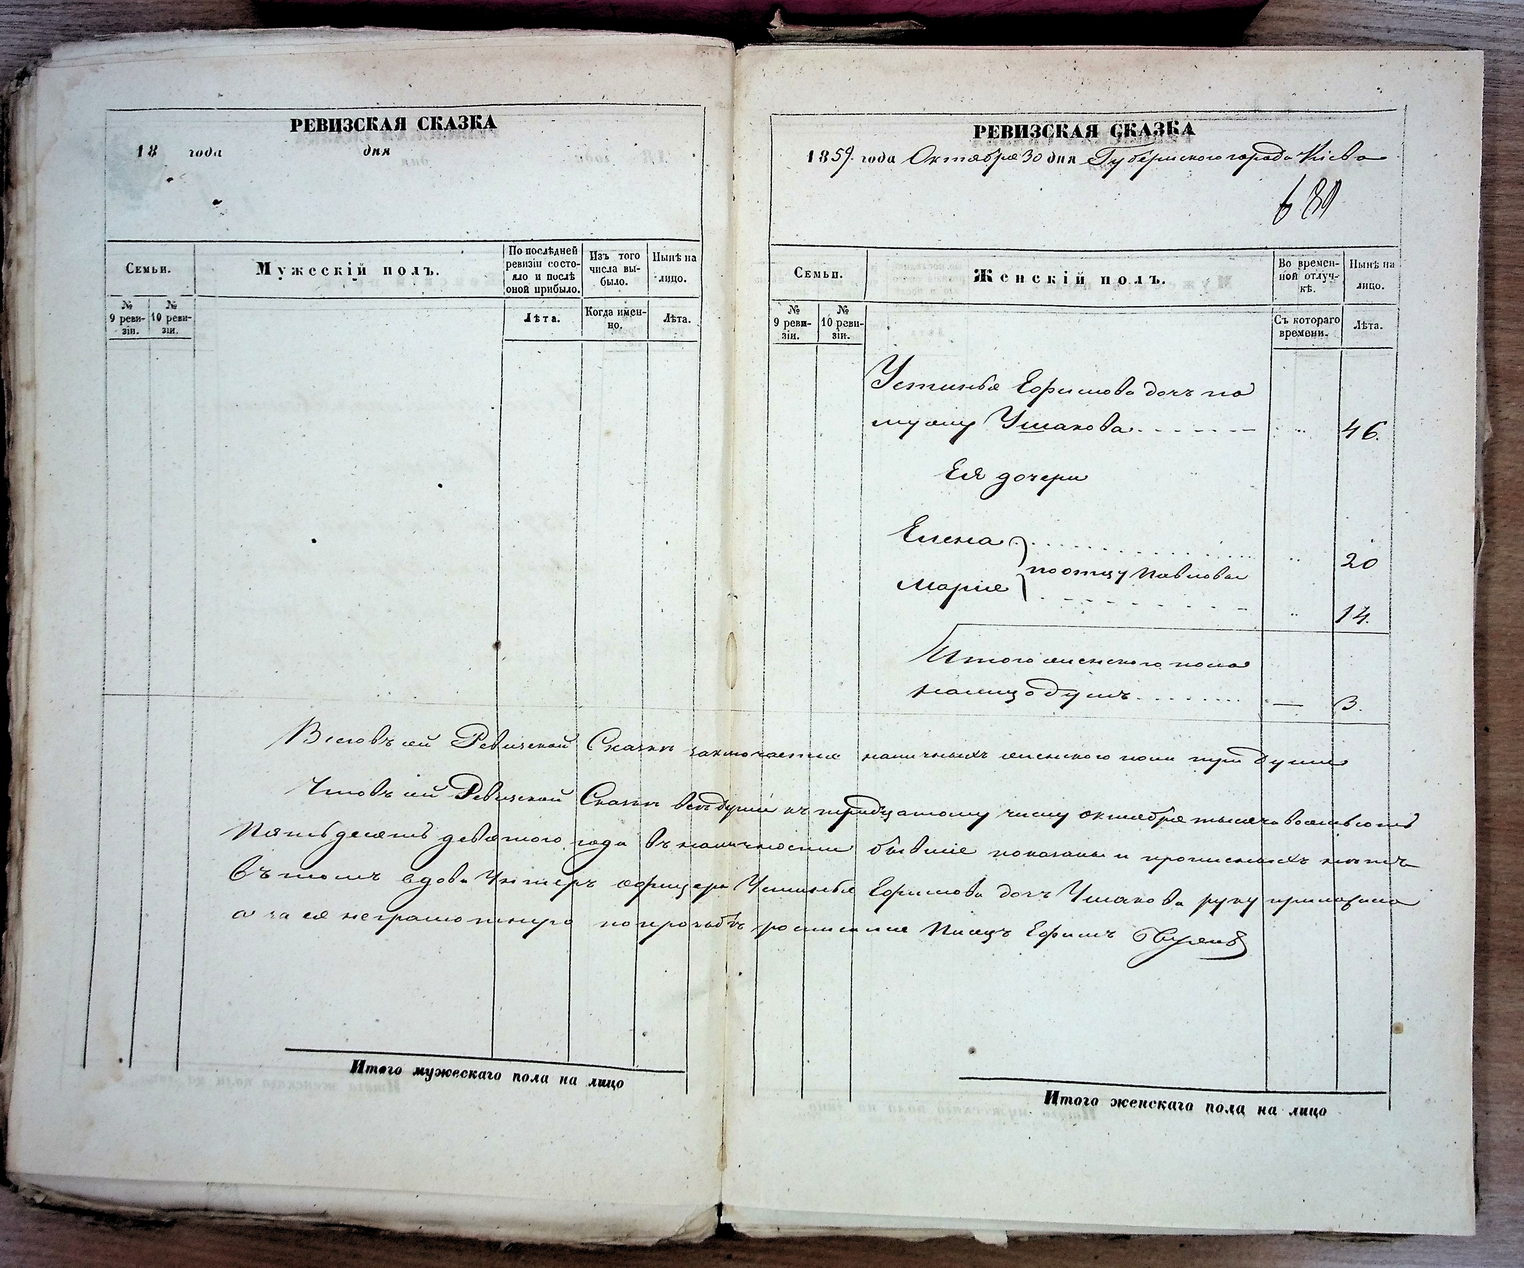 РЕВИЗСКАЯ СКАЗКА
18 года дня
Семьи.
Мужескій полъ.
По послѣдней ревизіи состояло и послѣ оной прибыло.
Изъ того числа выбыло.
Нынѣ на лицо.
№ 9 ревизіи.
№ 10 ревизіи.
Лѣта.
Когда именно.
Лѣта.
Итого мужескаго пола на лицо
РЕВИЗСКАЯ СКАЗКА
1859. года Октября 30 дня Губернского города Кіева
Семьи.
Женскій полъ.
Во временной отлучкѣ.
Нынѣ на лицо.
№ 9 ревизіи.
№ 10 ревизіи.
Съ котораго времени.
Лѣта.
Устинья Ефимова дочь по
мужу Ушакова 46.
Ея дочери
Елена 20
по отцу Павловы
Марія 14.
Итого женского пола
налицо душъ — 3.
Всего въ сей Ревизской Сказкѣ заключается наличныхъ женского пола три души
Что въ сей Ревизской Сказкѣ всѣ души къ тридцатому числу октября тысяча восемьсотъ
Пятьдесятъ девятого года въ наличности бывшіе показаны и прописныхъ нѣтъ
въ томъ вдова Унтеръ офицера Устинья Ефимова дочь Ушакова руку приложила
а за ея неграмотную по прозьбѣ росписался Писецъ Ефимъ
Итого женскаго пола на лицо